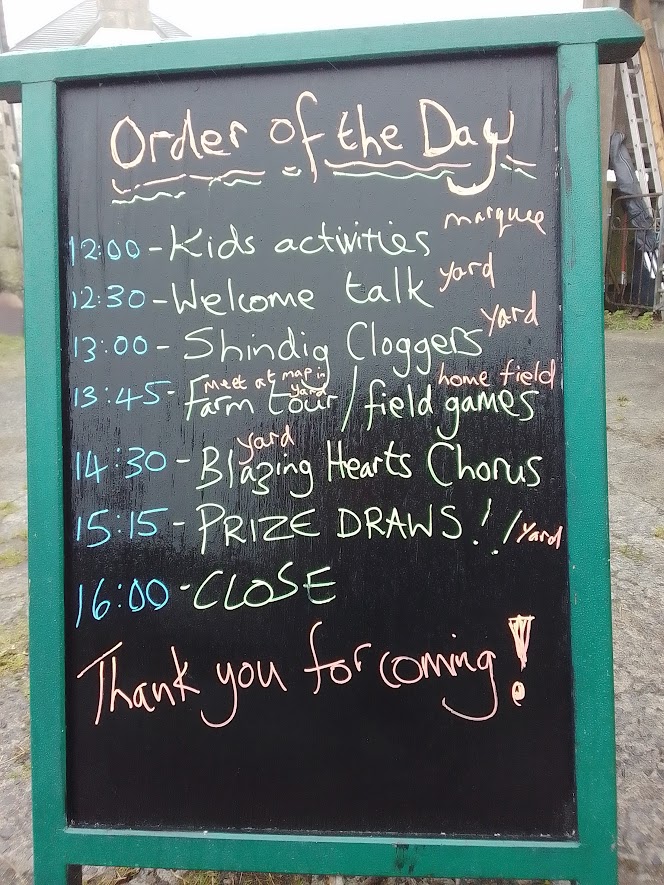 Order of the Day
12:00 - Kids activities marquee
12:30 - Welcome talk yard
13:00 - Shindig Cloggers yard
Meet at map in yard home field
13:45 - Farm tour / field games
yard
14:30 - Blazing Hearts Chorus
15:15 - PRIZE DRAWS!! / yard
16:00 - CLOSE
Thank you for coming!